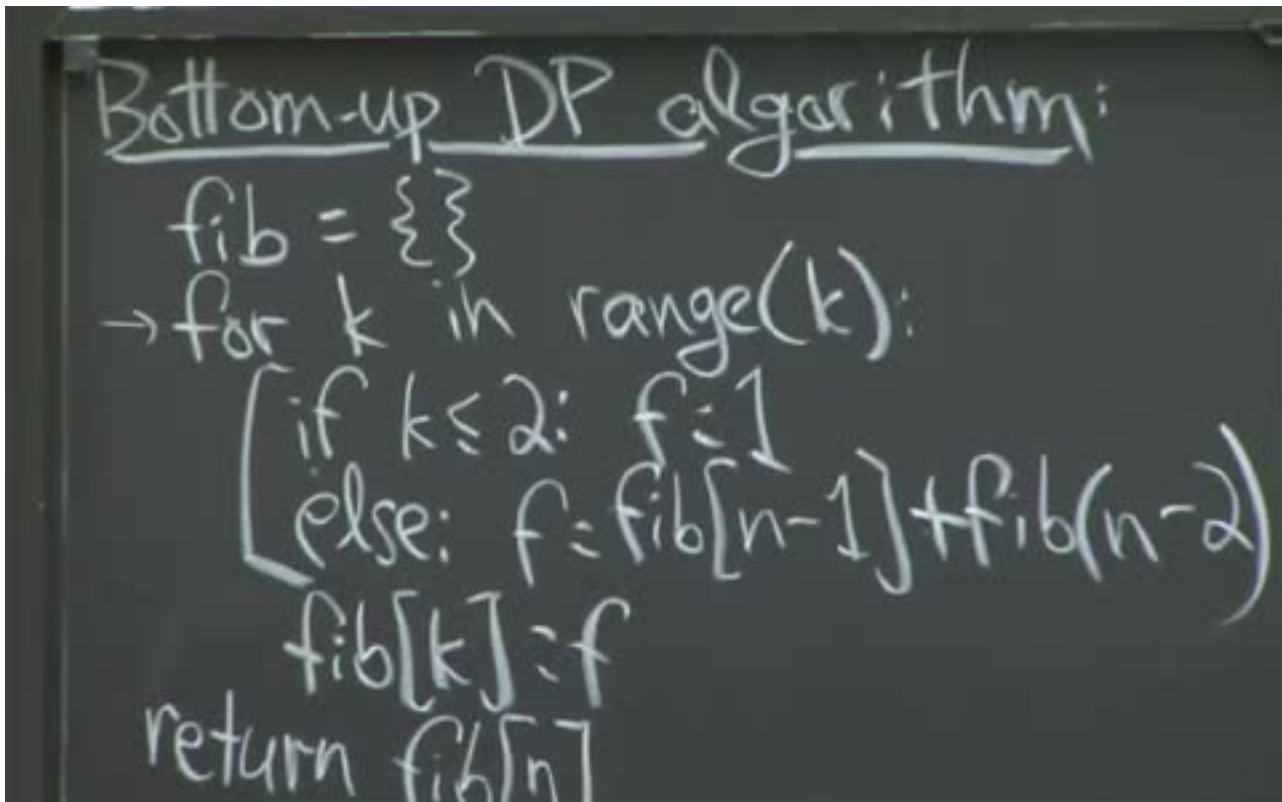 Bottom-up DP algorithm:
fib = {}
→ for k in range(k):
if k ≤ 2: f = 1
else: f = fib[n-1] + fib(n-2)
fib[k] = f
return fib[n]